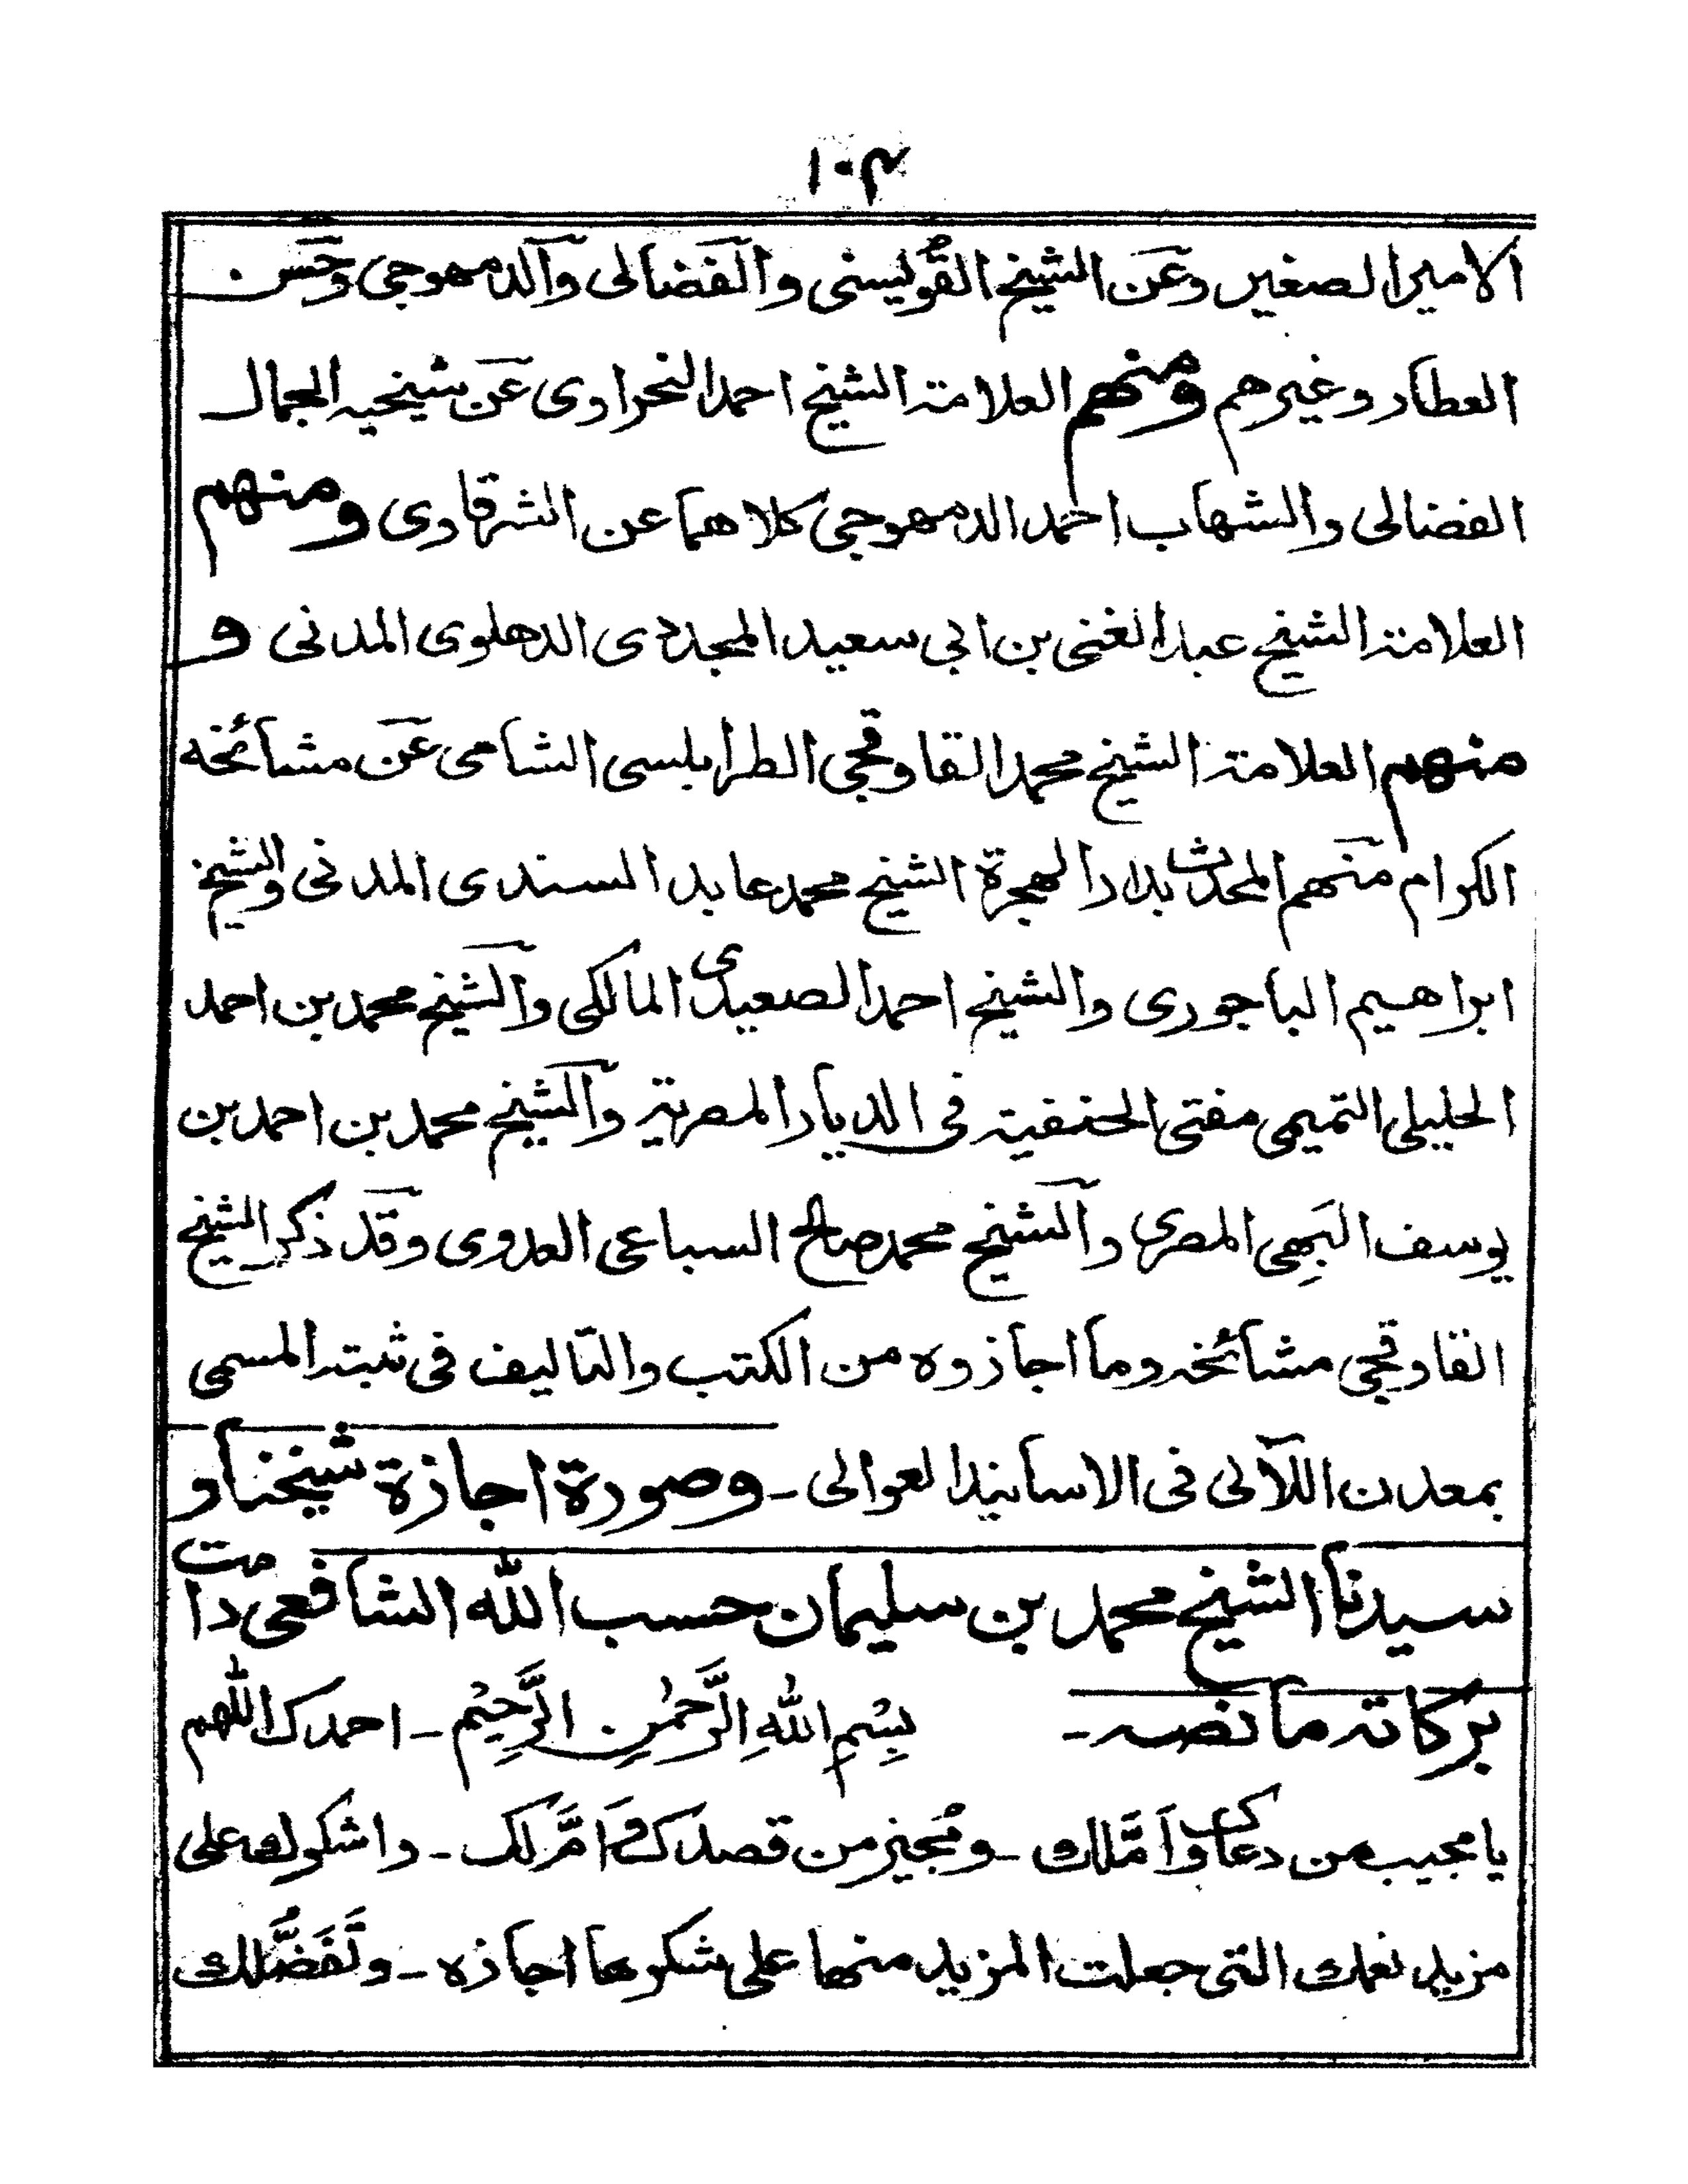 ١٠٣
الامير الصغير وعن الشيخ القويسنى والفضالى والدمهوجى وحسن
العطار وغيرهم ومنهم العلامة الشيخ احمد النحراوى عن شيخيه الجمال
الفضالى والشهاب احمد الدمهوجى كلاهما عن الشرقاوى ومنهم
العلامة الشيخ عبد الغنى بن ابى سعيد المجددى الدهلوى المدنى و
منهم العلامة الشيخ محمد القاوقجى الطرابلسى الشامى عن مشائخه
الكرام منهم المحدث بدار الهجرة الشيخ محمد عابد السندى المدنى والشيخ
ابراهيم الباجورى والشيخ احمد الصعيدى المالكى والشيخ محمد بن احمد
الخليلى التميمى مفتى الحنفية فى الديار المصرية والشيخ محمد بن احمد بن
يوسف البَهِى المصرى والشيخ محمد صالح السباعى العدوى وقد ذكر الشيخ
القاوقجى مشائخه وما اجازوه من الكتب والتاليف فى ثبته المسمى
بمعدن اللآلى فى الاسانيد العوالى - وصورة اجازة شيخنا و
سيدنا الشيخ محمد بن سليمان حسب الله الشافعى دامت
بركاته ما نصه - بِسْمِ اللهِ الرَّحْمٰنِ الرَّحِيْمِ - احمدك اللهم
يا مجيب من دعاك وَاَمَّلك - ومُجيز من قصدك وَاَمَّ لك - واشكرك على
مزيد نعمك التى جعلت المزيد منها على شكرها اجازه - وتَفَضُّلك